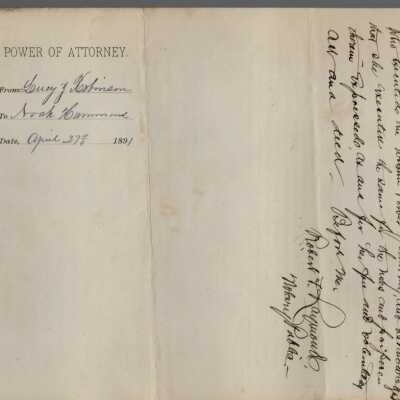 POWER OF ATTORNEY.
From Lucy Z Robinson
To Noah Hammond
Date, April 27th 1891
who executed the
that she executed the same for the uses and purposes
therein expressed as and for her free and voluntary
act and deed. Before me.
Robert F. Raymond.
Notary Public